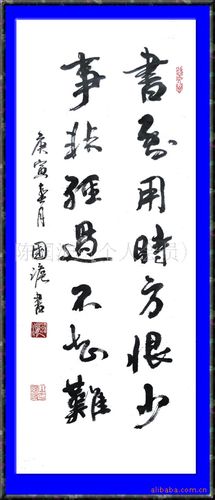 書到用時方恨少
事非經過不知難
庚寅春月 國滬書
alibaba.com.cn